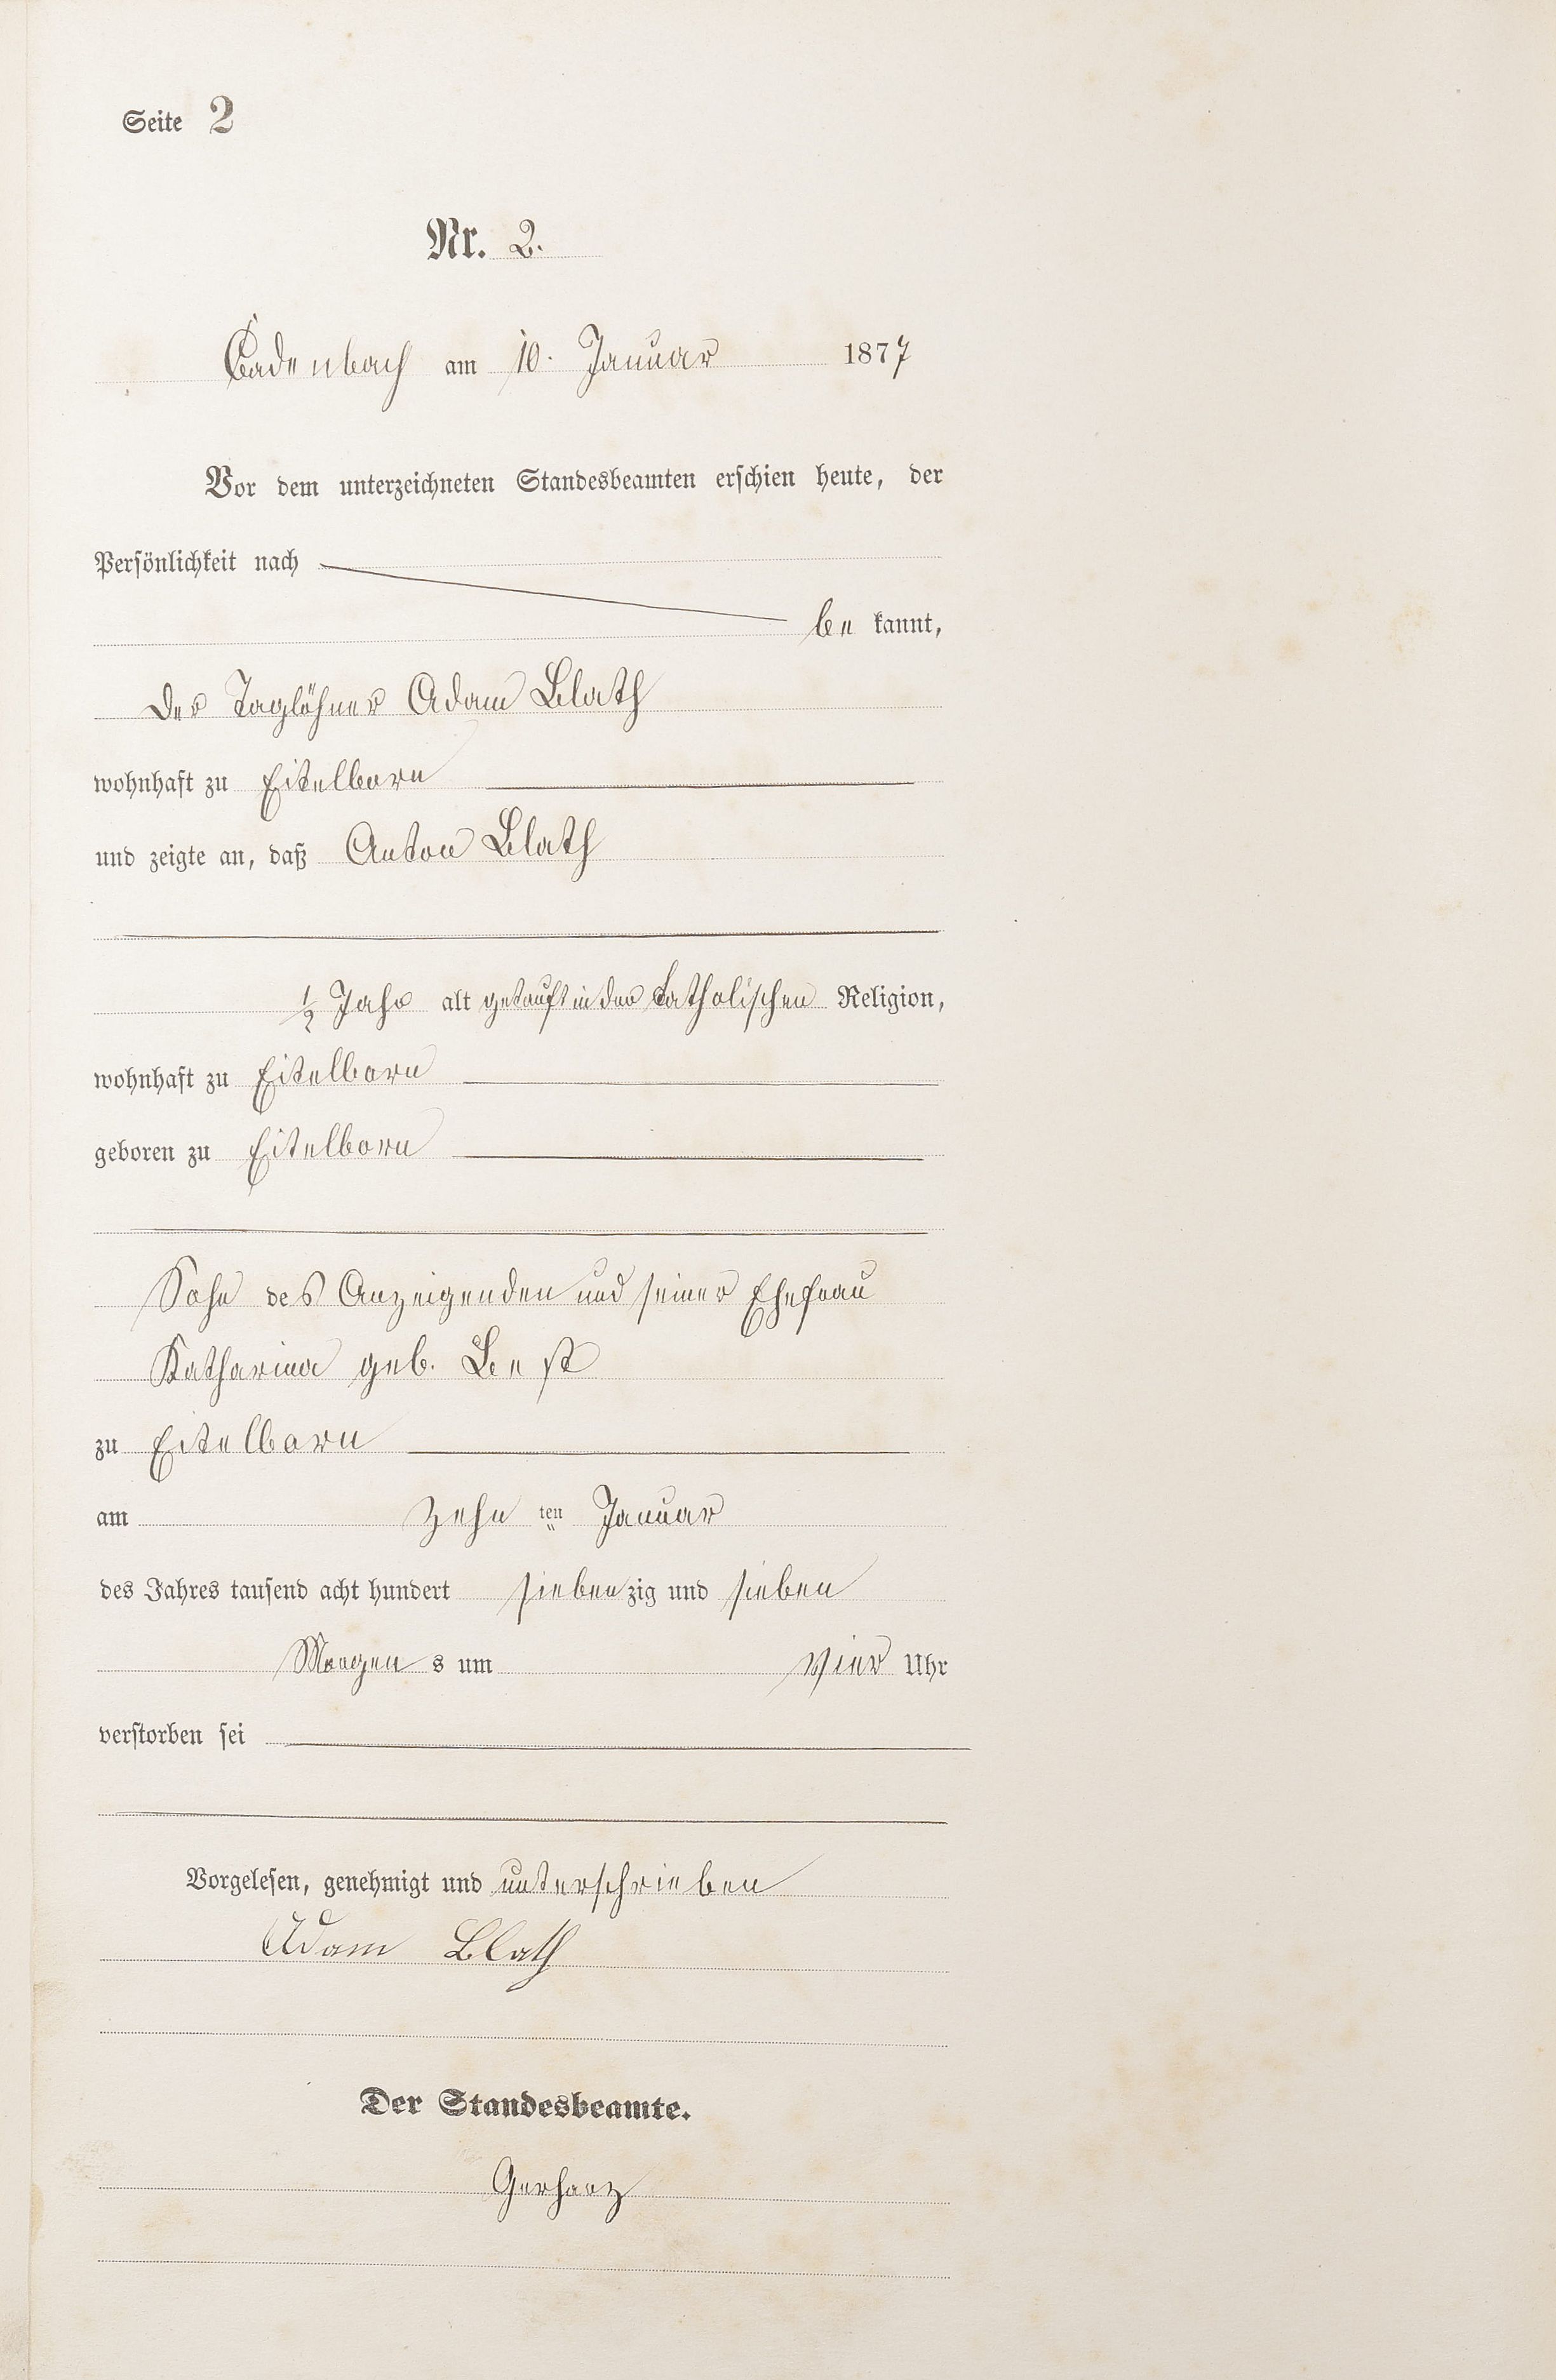 Seite 2
Nr. 2.
Cadenbach am 10. Januar 1877
Vor dem unterzeichneten Standesbeamten erschien heute, der
Persönlichkeit nach
be kannt,
der Taglöhner Adam Blath
wohnhaft zu Eitelborn
und zeigte an, daß Anton Blath
½ Jahr alt getauft in der katholischen Religion,
wohnhaft zu Eitelborn
geboren zu Eitelborn
Sohn des Anzeigenden und seiner Ehefrau
Katharina geb. Best
zu Eitelborn
am zehn ten Januar
des Jahres tausend acht hundert siebenzig und sieben
Morgen s um vier Uhr
verstorben sei
Vorgelesen, genehmigt und unterschrieben
Adam Blath
Der Standesbeamte.
Gerharz